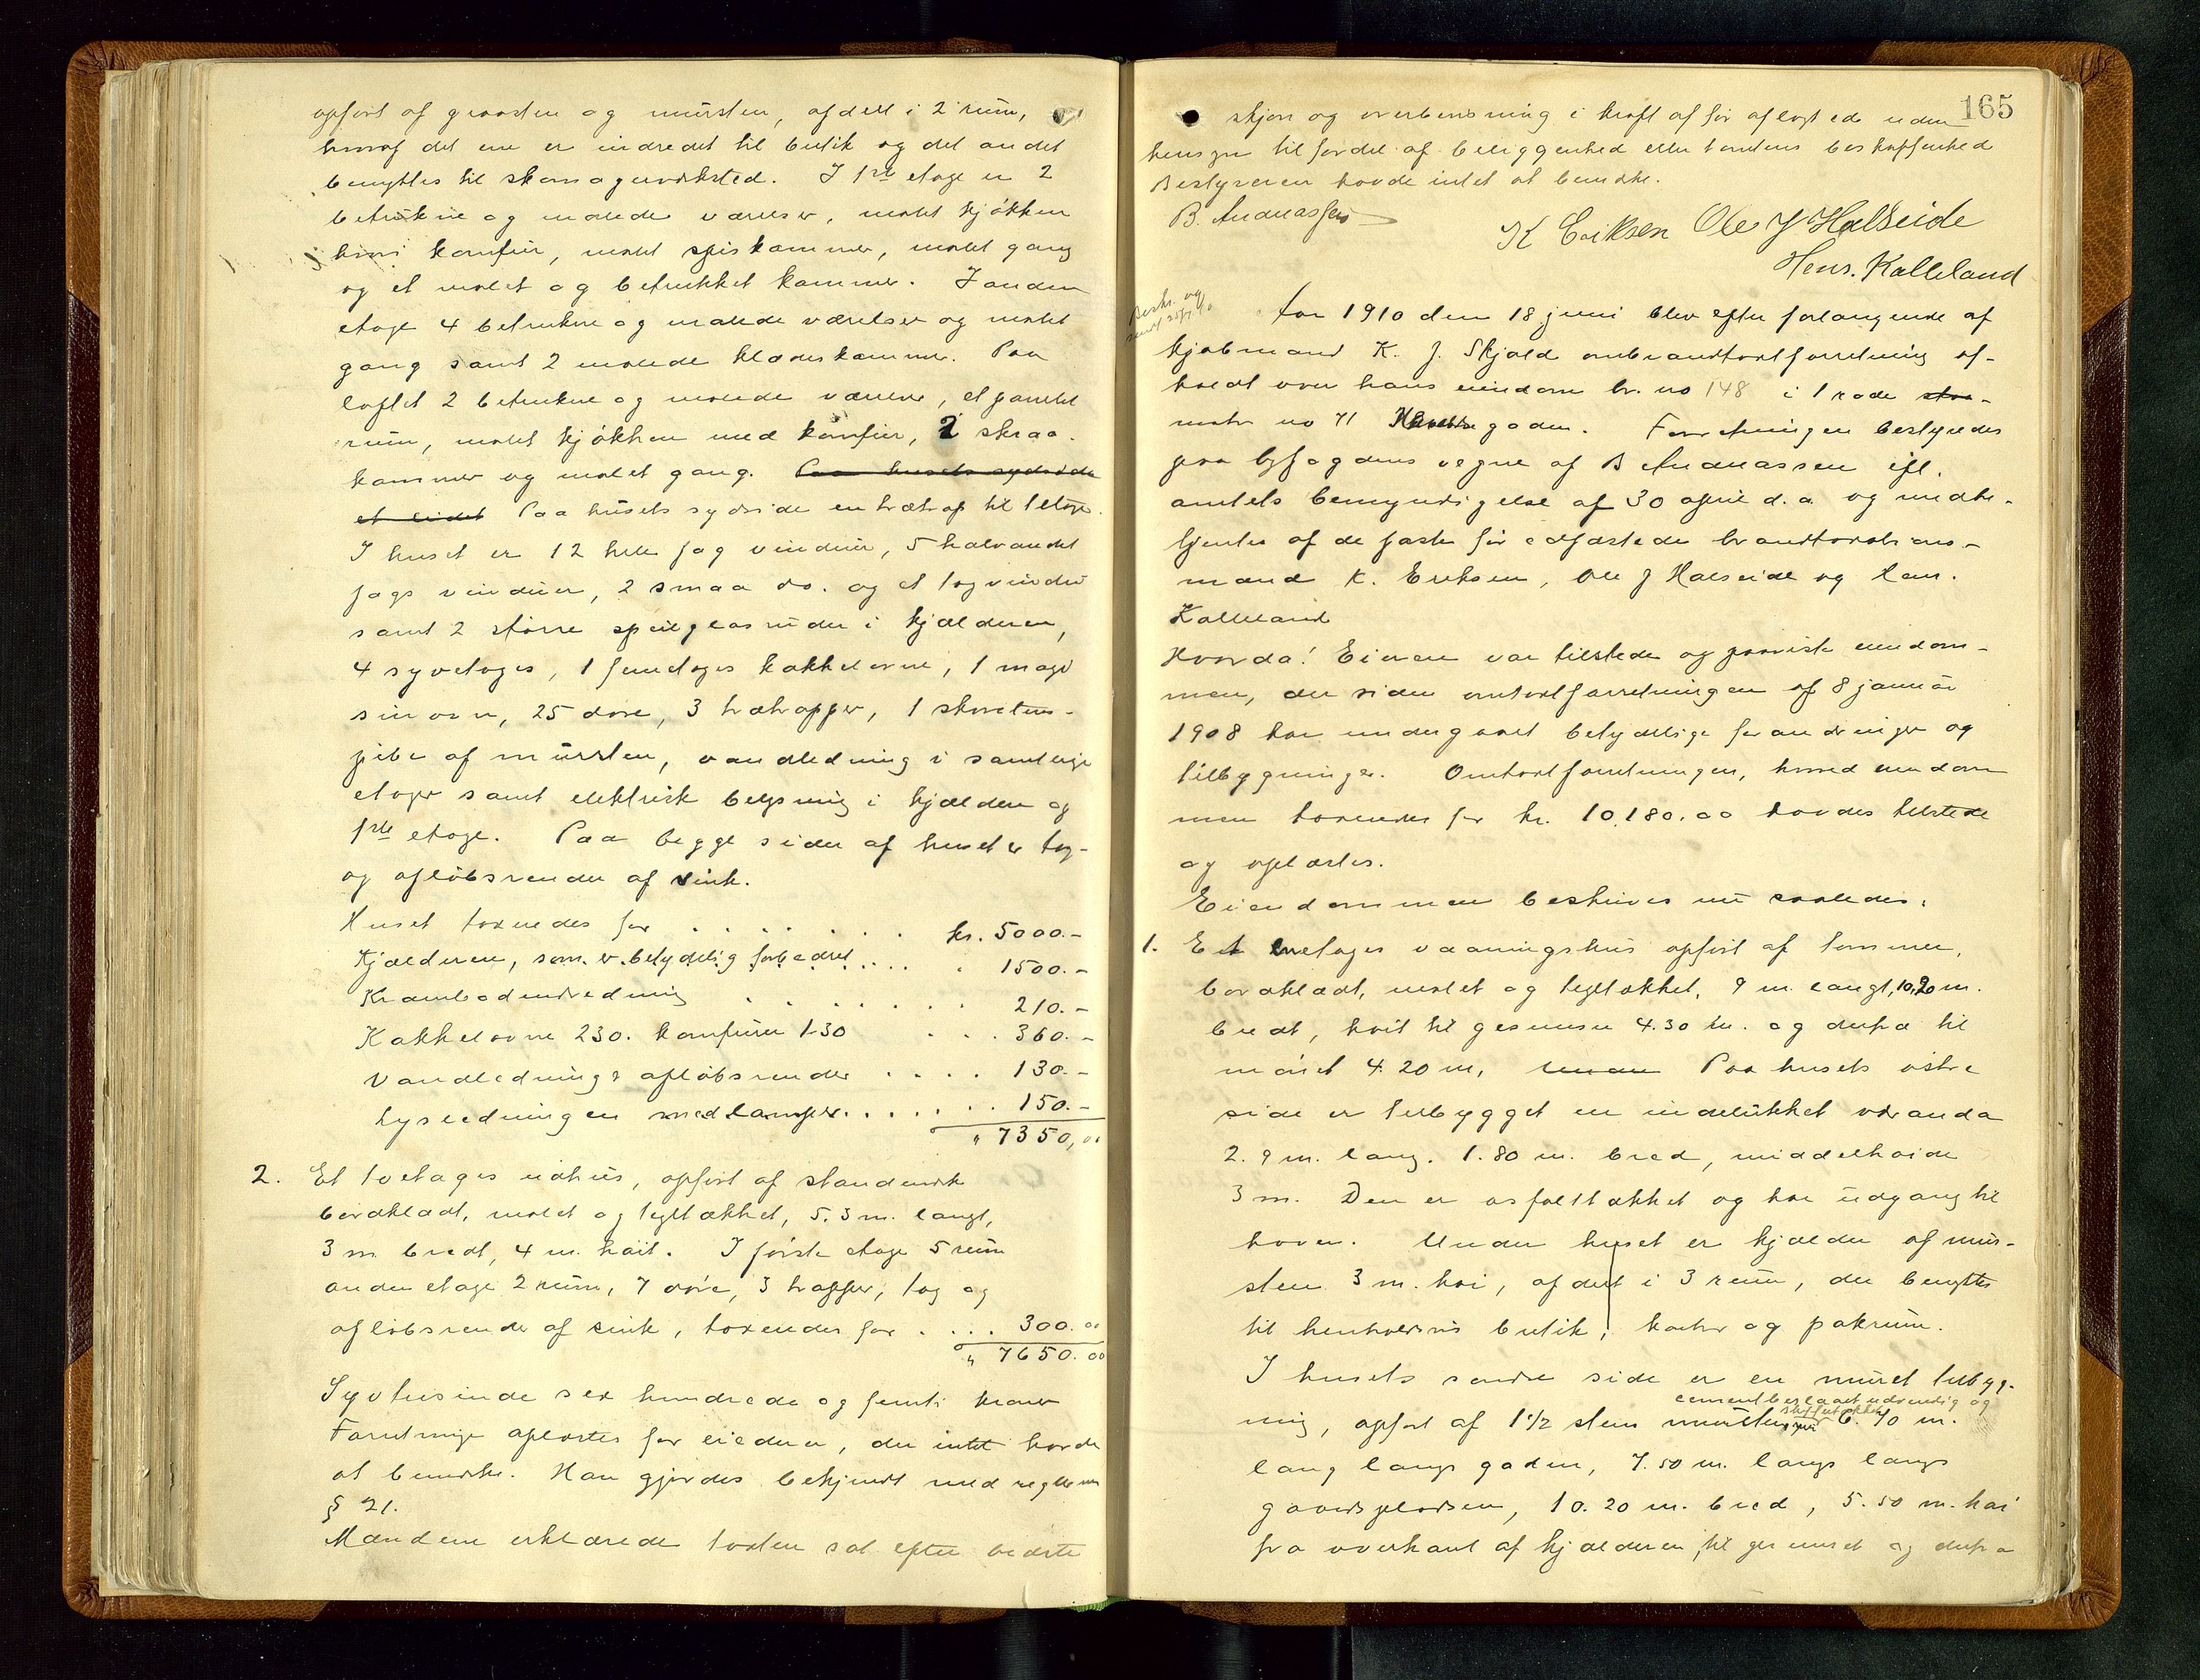 opført af graasten og mursten, afdelt i 2 rum,
hvoraf det ene er indredet til butik og det andet
benyttes til skomagerverksted. I 1ste etage er 2
betrukne og malede værelser, malet kjøkken
hvori komfur, malet spiskammer, malet gang
og et malet og betrukket kammer. I anden
etage 4 betrukne og malede værelser og malet
gang samt 2 malede klædeskammer. Paa
loftet 2 betrukne og malede værelser, et panelet
rum, malet kjøkken med komfur, 2 skraa-
kammer og malet gang. Paa husets sydside
et Paa husets sydside en trætrap til 1 etage.
I huset er 12 hele fag vinduer, 5 halvandet
fags vinduer, 2 smaa do. og et tagvindu
samt 2 større speilglasruder i kjælderen,
4 syvetages, 1 femetages kakkelovne, 1 maga
sinovn, 25 døre, 3 trætrapper, 1 skorstens-
pibe af mursten, vandledning i samtlige
etager samt elektrisk belysning i kjælder og
1ste etage. Paa begge sider af huset er tag-
og afløbsrender af sink.
Huset taxeredes for . . . . . . . kr. 5000.-
Kjælderen, som er betydelig forbedret . . . . 1500.-
Krambodindredning . . . . . . . 210.-
Kakkelovne 230. komfurer 130 . . . 360.-
Vandledning & afløbsrender . . . . 130.-
Lysledningen med lamper . . . . . . . 150.-
" 7350,00
2. Et toetages udhus, opført af standerverk
bordklædt, malet og tegltækket, 5.3 m. langt,
3 m bredt, 4 m. høit. I første etage 5 rum
anden etage 2 rum, 7 døre, 3 trapper, tag og
afløbsrende af sink, taxeredes for . . . . 300.00
" 7650.00
Syvtusinde sex hundrede og femti kroner
Forretninge oplæstes for eieren, der intet havde
at bemerke. Han gjordes bekjendt med reglerne
§ 21.
Mændene erklærede taxten sat efter bedste
165
skjøn og overbevisning i kraft af før aflagt ed uden
hensyn til fordel af beliggenhed eller tomtens beskaffenhed
Bestyreren havde intet at bemerke.
B. Andreassen
K Eriksen Ole J Halseide
Hens. Kalleland
Beskr. og
Aar 1910 den 18 juni blev efter forlangende af
kjøbmand K. J. Skjold ombrandtaxtforretning af-
holdt over hans eiendom br. no 148 i 1 rode
matr no 71 gaden. Forretningen bestyredes
paa byfogdens vegne af B Andreassen ifl.
amtets bemyndigelse af 30 april d.a. og medbe-
tjentes af de faste før edfæstede brandtaxtions-
mænd K. Eriksen, Ole J Halseide og Hens.
Kalleland
Hvorda! Eieren var tilstede og paaviste eiendom-
men, der siden omtaxtforretningen af 8 januar
1908 har undergaaet betydelige forandringer og
tilbygninger. Omtaxtforretningen, hvorved eiendom
men taxeredes for kr. 10,180.00 havdes tilstede
og oplæstes.
Eiendommen beskrives nu saaledes:
1. Et enetages vaaningshus opført af tømmer,
bordklædt, malet og tegltækket, 9 m. langt, 10,20 m.
bredt, høit til gesimsen 4.30 m. og derfra til
mønet 4.20 m, Paa husets østre
side er tilbygget en indelukket veranda
2.9 m. lang. 1.80 m. bred, middelhøide
3 m. Den er asfalttækket og har udgang til
haven. Under huset er kjælder af mur-
sten 3 m. høi, afdelt i 3 rum, der benyttes
til henholdsvis butik, kontor og pakrum.
I husets søndre side er en muret tilbyg-
cementberlaaet udvendig og
skifertækket
ning, opført af 1 1/2 sten mursten, 6.70 m.
lang langs gaden, 7.50 m. langs langs
gaardspladsen, 10.20 m. bred, 5.50 m. høi
fra overkant af kjælderen til gesimset og derfra